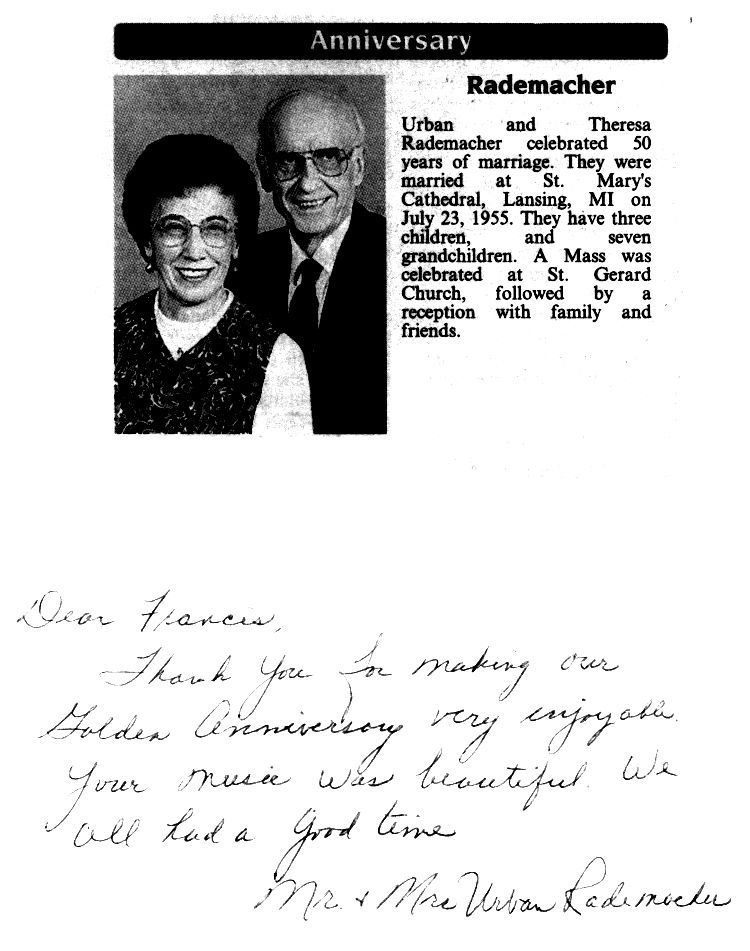 Anniversary
Rademacher
Urban and Theresa
Rademacher celebrated 50
years of marriage. They were
married at St. Mary's
Cathedral, Lansing, MI on
July 23, 1955. They have three
children, and seven
grandchildren. A Mass was
celebrated at St. Gerard
Church, followed by a
reception with family and
friends.
Dear Francis,
Thank You for making our
Golden Anniversary very enjoyable.
Your music was beautiful. We
all had a good time
Mr. & Mrs Urban Rademacher